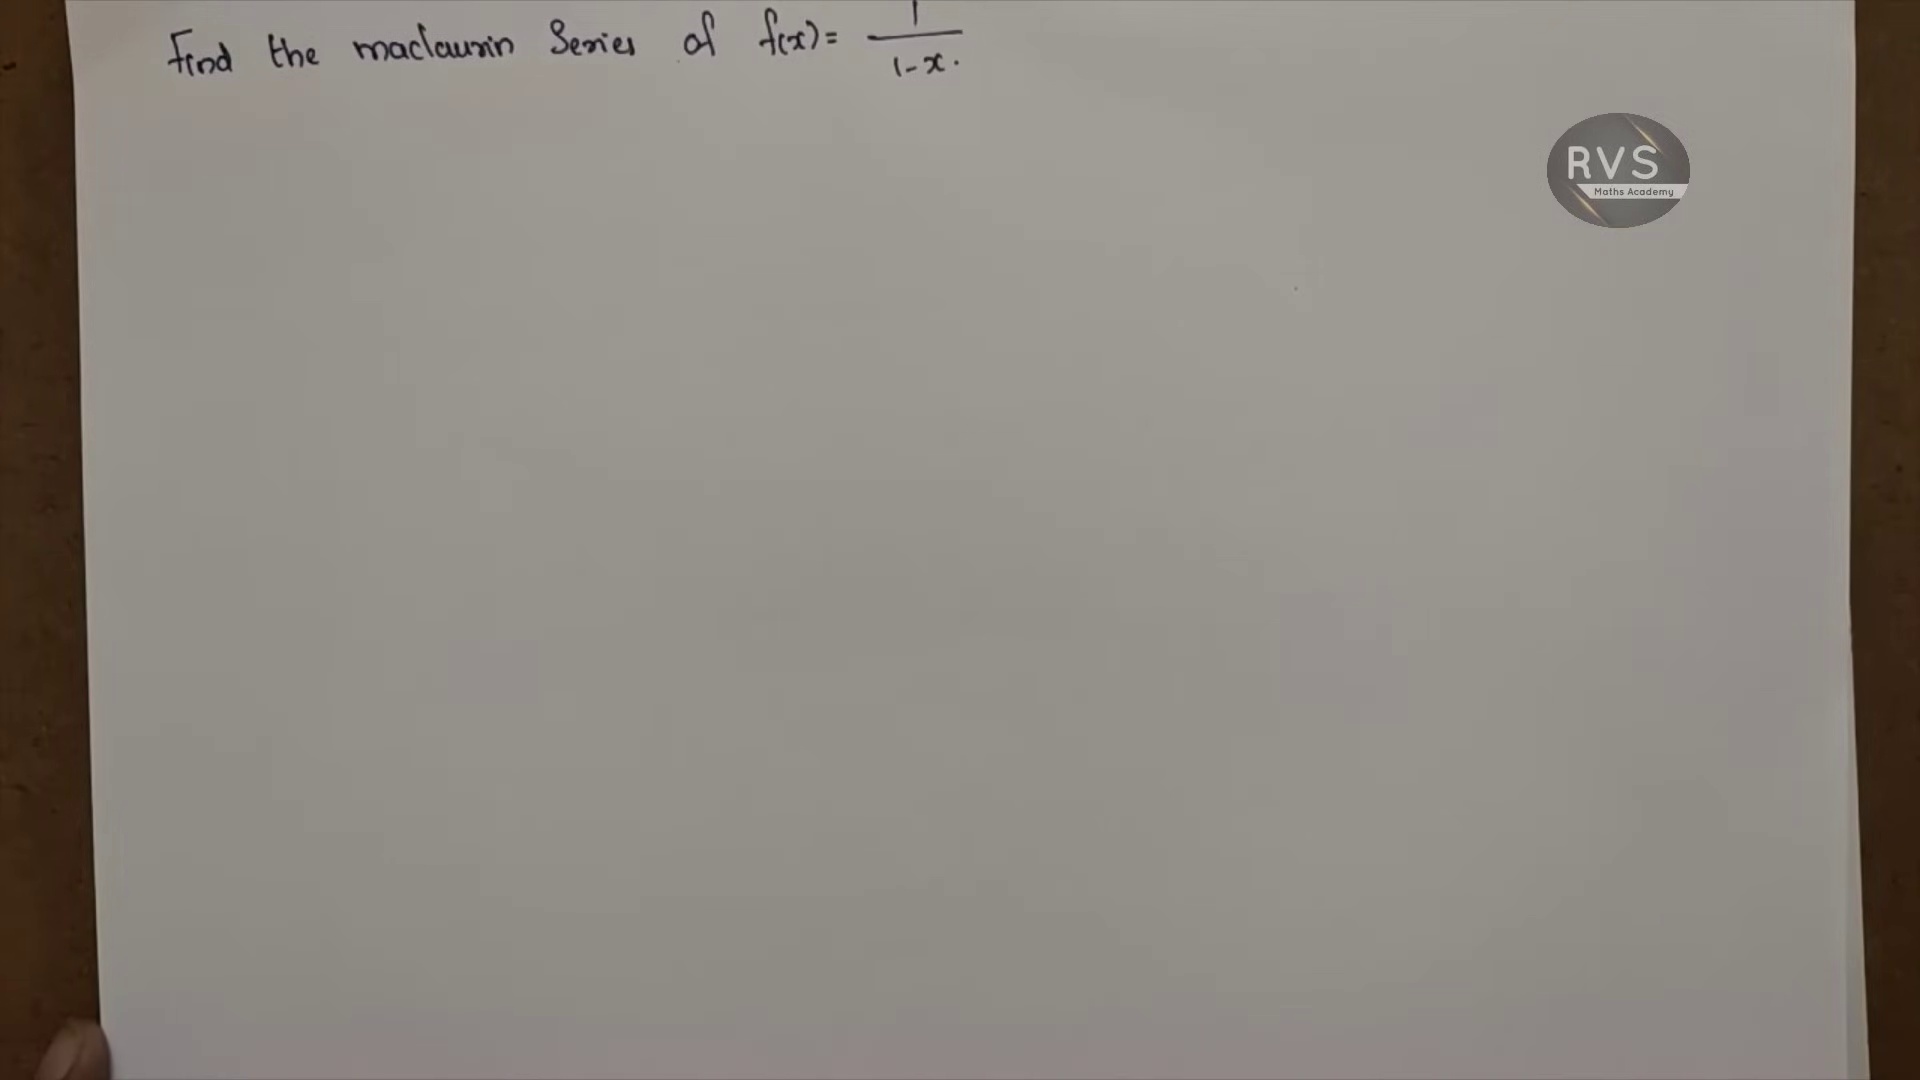 Find the maclaurin Series of f(x) = 1/1-x.
RVS
Maths Academy